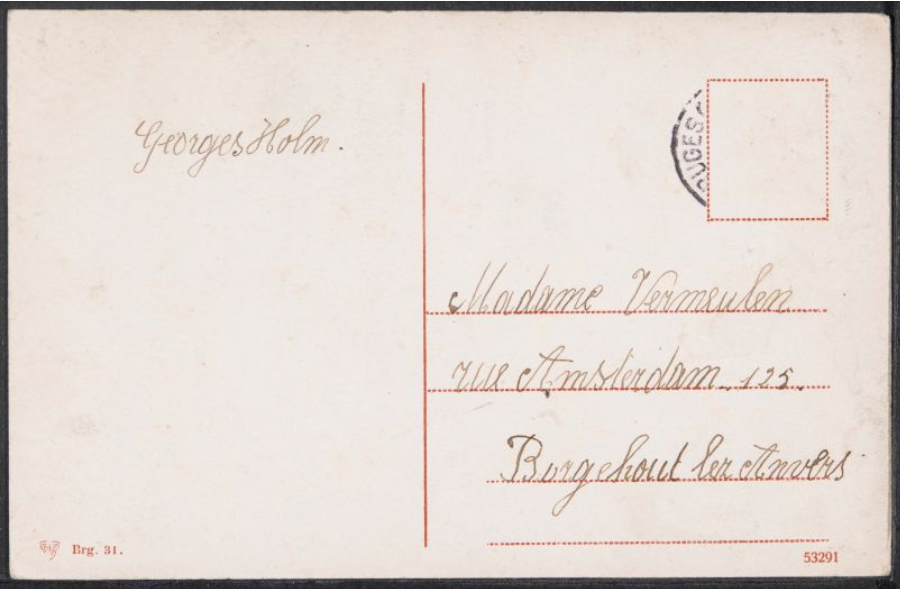 Georges Holm.
RUGES
Madame Vermeulen
rue Amsterdam. 125.
Borgehout lez Anvers
Brg. 31.
53291